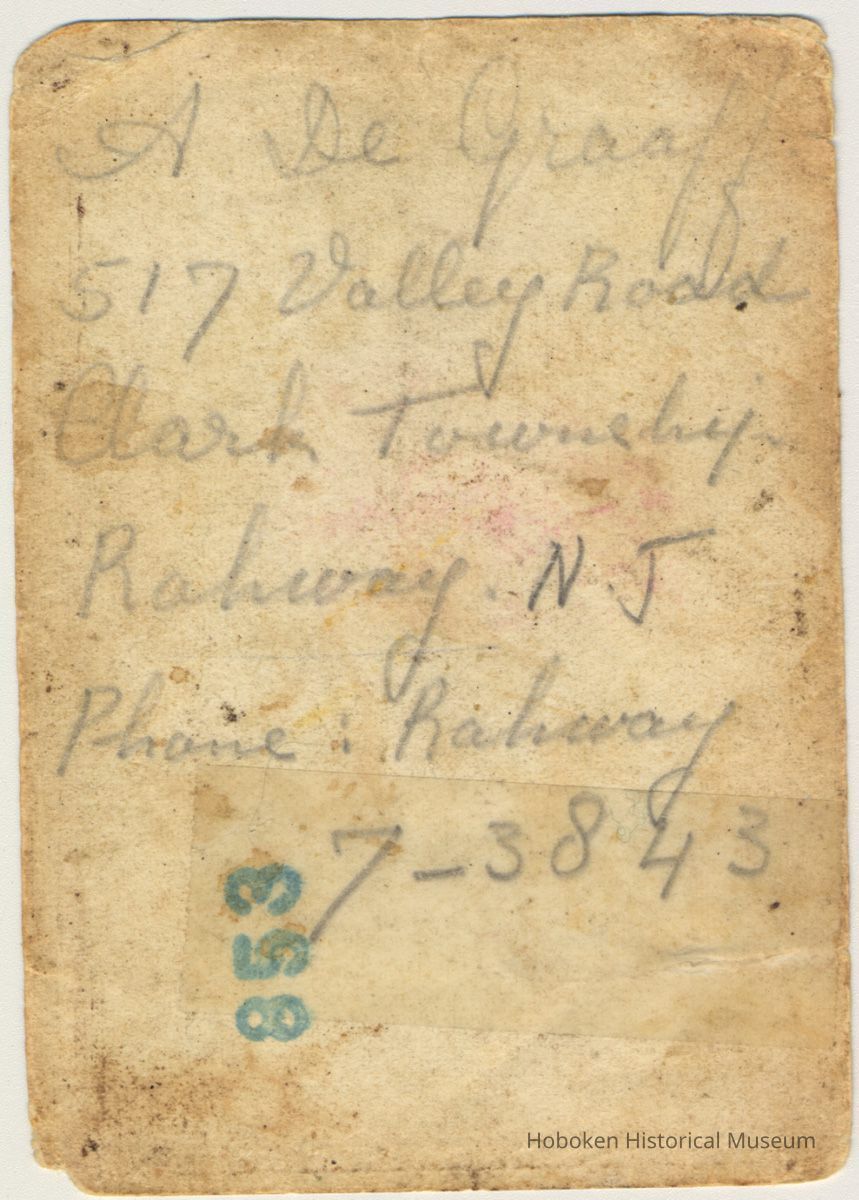 A De Graaff
517 Valley Road
Clark Township
Rahway. N.J
Phone: Rahway
7-3843
853
Hoboken Historical Museum